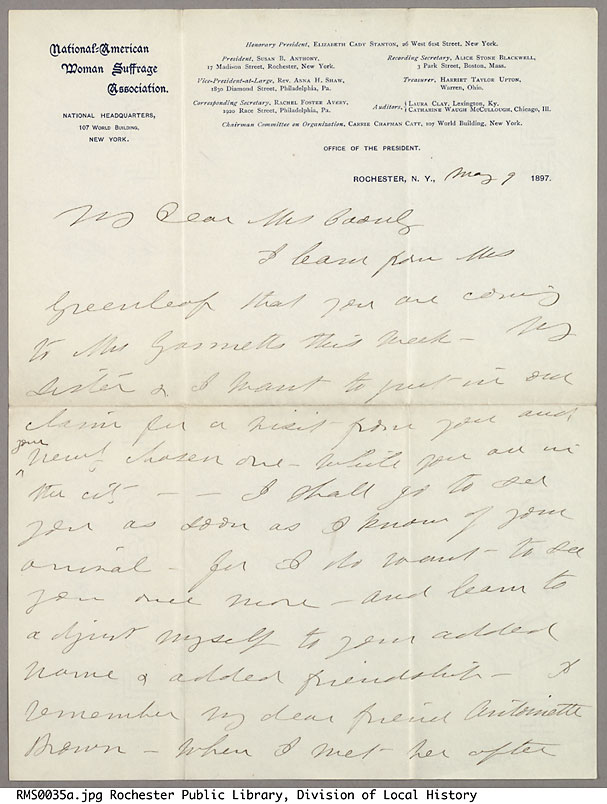 National-American
Woman Suffrage
Association.
NATIONAL HEADQUARTERS,
107 WORLD BUILDING,
NEW YORK.
Honorary President, ELIZABETH CADY STANTON, 26 West 61st Street, New York.
President, SUSAN B. ANTHONY,
17 Madison Street, Rochester, New York.
Vice-President-at-Large, REV. ANNA H. SHAW,
1830 Diamond Street, Philadelphia, Pa.
Corresponding Secretary, RACHEL FOSTER AVERY,
1920 Race Street, Philadelphia, Pa.
Recording Secretary, ALICE STONE BLACKWELL,
3 Park Street, Boston, Mass.
Treasurer, HARRIET TAYLOR UPTON,
Warren, Ohio.
Auditors, { LAURA CLAY, Lexington, Ky.
CATHARINE WAUGH MCCULLOUGH, Chicago, Ill.
Chairman Committee on Organization, CARRIE CHAPMAN CATT, 107 World Building, New York.
OFFICE OF THE PRESIDENT.
ROCHESTER, N. Y., May 9 1897.
My Dear Mrs
I learn from Mrs
Greenleaf that you are coming
to Mrs Gannetts this week - My
sister & I want to put in our
claim for a visit from you and
your newly chosen one - while you are in
the city - - I shall go to see
you as soon as I know of your
arrival - for I do want - to see
you once more - and learn to
adjust myself to your added
name & added friendship - I
remember my dear friend Antoinette
Brown - when I met her after
RMS0035a.jpg Rochester Public Library, Division of Local History